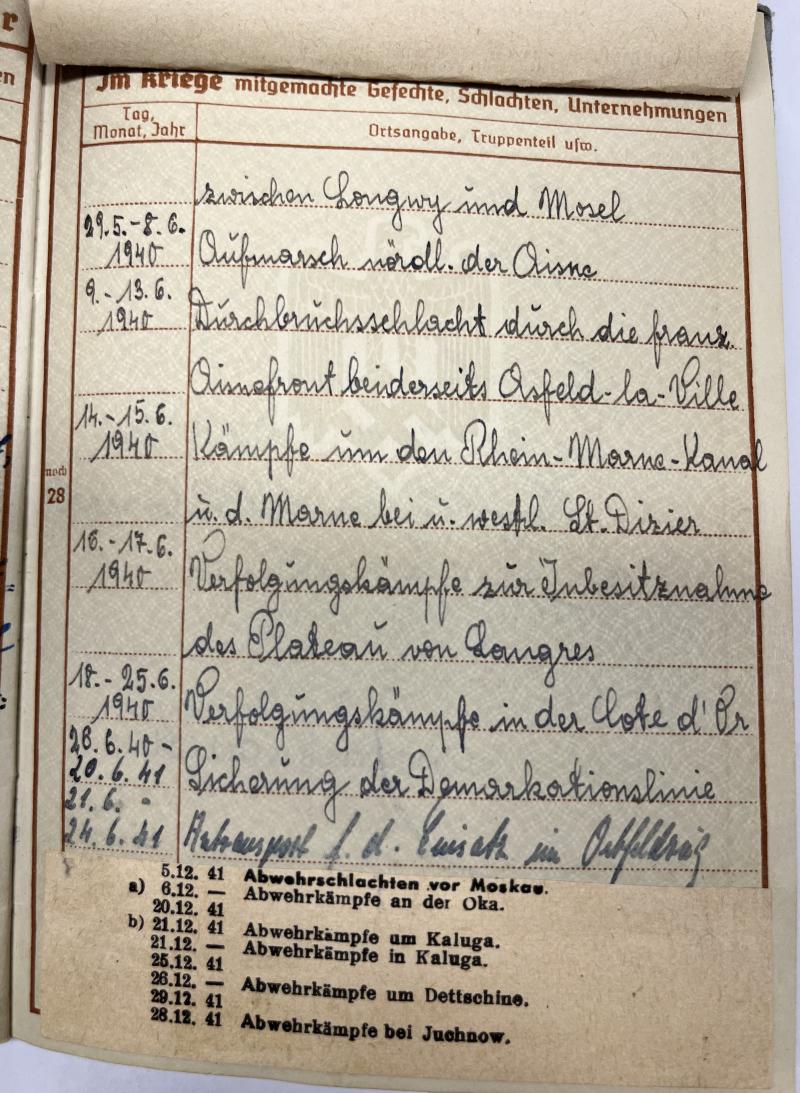 r
en
Im Kriege mitgemachte Gefechte, Schlachten, Unternehmungen
Tag, Monat, Jahr
Ortsangabe, Truppenteil usw.
noch 28
zwischen Longwy und Mosel
29.5.-8.6. 1940 Aufmarsch nördl. der Aisne
9.-13.6. 1940 Durchbruchsschlacht durch die franz.
Aisnefront beiderseits Asfeld-la-Ville
14.-15.6. 1940 Kämpfe um den Rhein-Marne-Kanal
u. d. Marne bei u. westl. St. Dizier
16.-17.6. 1940 Verfolgungskämpfe zur Inbesitznahme
des Plateau von Langres
18.-25.6. 1940 Verfolgungskämpfe in der Cote d'Or
26.6.40-
20.6.41 Sicherung der Demarkationslinie
21.6. -
24.6.41 Antransport f. d. Einsatz im Ostfeldzug
5.12. 41 Abwehrschlachten vor Moskau.
a) 6.12. — Abwehrkämpfe an der Oka.
20.12. 41
b) 21.12. 41 Abwehrkämpfe um Kaluga.
21.12. — Abwehrkämpfe in Kaluga.
25.12. 41
26.12. — Abwehrkämpfe um Dettschine.
29.12. 41
28.12. 41 Abwehrkämpfe bei Juchnow.